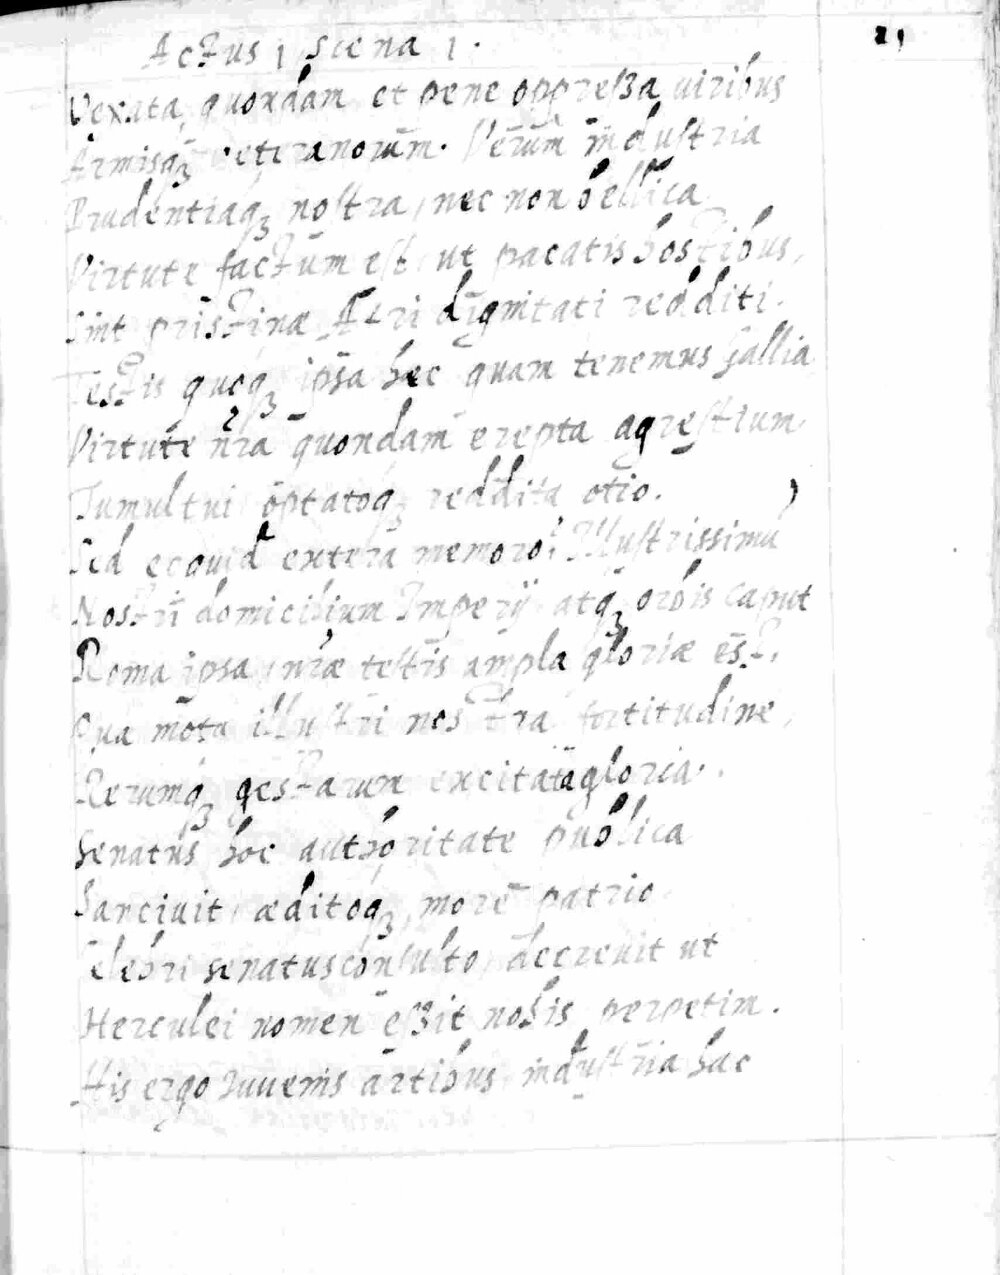 Actus 1 scena 1. 21
Vexata quondam et pene oppreßa uiribus
Armisqꝫ ueteranorūm. Verūm industria
Prudentiaqꝫ nostra, nec non bellica
Virtute factum est ut pacatis hostibus,
Sint pristinæ Atri dignitati redditi.
Testis quoqꝫ ipsa hec quam tenemus Gallia
Virtute nr̃a quondam erepta agrestium
Tumultui optatoqꝫ reddita otio.
Sed ecquid extera memoro? Illustrissimū
Nostri domicilium Imperij atqꝫ orbis caput
Roma ipsa, nr̃æ testis ampla gloriæ est,
Qua mota illustri nostra fortitudine,
Rerumqꝫ gestarum excitata gloria.
Senatus hoc authoritate publica
Sanciuit, æditoqꝫ, more patrio
Celebri senatusconsulto, decreuit ut
Herculei nomen eßit nobis perpetim.
His ergo Iuuenis artibus, industria hac